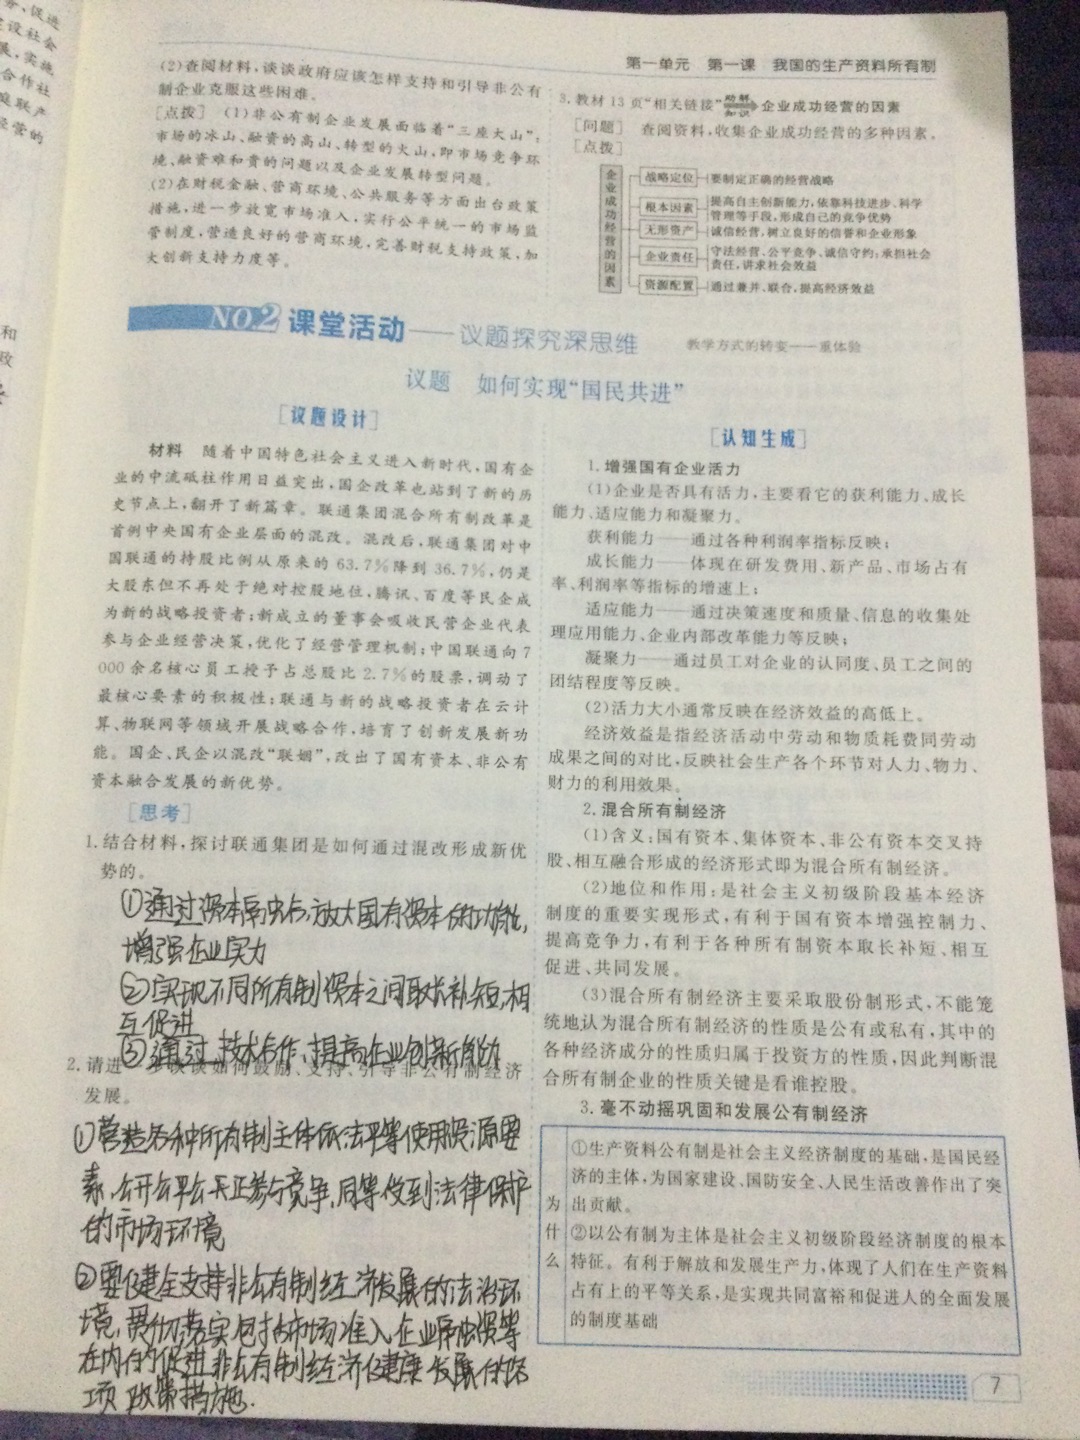 务、促进
建设社会
展,实施
合作社
庭联产
经营的
和
政
第一单元 第一课 我国的生产资料所有制
(2)查阅材料,谈谈政府应该怎样支持和引导非公有
制企业克服这些困难。
[点拨] (1)非公有制企业发展面临着“三座大山”:
市场的冰山、融资的高山、转型的火山,即市场竞争环
境、融资难和贵的问题以及企业发展转型问题。
(2)在财税金融、营商环境、公共服务等方面出台政策
措施,进一步放宽市场准入,实行公平统一的市场监
管制度,营造良好的营商环境,完善财税支持政策,加
大创新支持力度等。
3.教材13页“相关链接”助解知识企业成功经营的因素
[问题] 查阅资料,收集企业成功经营的多种因素。
[点拨]
企业成功经营的因素
战略定位 要制定正确的经营战略
根本因素 提高自主创新能力,依靠科技进步、科学
管理等手段,形成自己的竞争优势
无形资产 诚信经营,树立良好的信誉和企业形象
企业责任 守法经营、公平竞争、诚信守约;承担社会
责任,讲求社会效益
资源配置 通过兼并、联合,提高经济效益
NO.2 课堂活动——议题探究深思维 教学方式的转变——重体验
议题 如何实现“国民共进”
[议题设计]
材料 随着中国特色社会主义进入新时代,国有企
业的中流砥柱作用日益突出,国企改革也站到了新的历
史节点上,翻开了新篇章。联通集团混合所有制改革是
首例中央国有企业层面的混改。混改后,联通集团对中
国联通的持股比例从原来的63.7%降到36.7%,仍是
大股东但不再处于绝对控股地位,腾讯、百度等民企成
为新的战略投资者;新成立的董事会吸收民营企业代表
参与企业经营决策,优化了经营管理机制;中国联通向7
000余名核心员工授予占总股比2.7%的股票,调动了
最核心要素的积极性;联通与新的战略投资者在云计
算、物联网等领域开展战略合作,培育了创新发展新功
能。国企、民企以混改“联姻”,改出了国有资本、非公有
资本融合发展的新优势。
[思考]
1.结合材料,探讨联通集团是如何通过混改形成新优
势的。
①通过资本融合,放大国有资本的功能,
增强企业实力
②实现不同所有制资本之间取长补短,相
互促进
③通过技术合作,提高企业创新能力
2.请进一步谈谈如何鼓励、支持、引导非公有制经济
发展。
①营造各种所有制主体依法平等使用资源要
素,公开公平公正参与竞争,同等受到法律保护
的市场环境
②要健全支持非公有制经济发展的法治环
境,贯彻落实包括市场准入企业融资等
在内的促进非公有制经济健康发展的各
项政策措施.
[认知生成]
1.增强国有企业活力
(1)企业是否具有活力,主要看它的获利能力、成长
能力、适应能力和凝聚力。
获利能力——通过各种利润率指标反映;
成长能力——体现在研发费用、新产品、市场占有
率、利润率等指标的增速上;
适应能力——通过决策速度和质量、信息的收集处
理应用能力、企业内部改革能力等反映;
凝聚力——通过员工对企业的认同度、员工之间的
团结程度等反映。
(2)活力大小通常反映在经济效益的高低上。
经济效益是指经济活动中劳动和物质耗费同劳动
成果之间的对比,反映社会生产各个环节对人力、物力、
财力的利用效果。
2.混合所有制经济
(1)含义:国有资本、集体资本、非公有资本交叉持
股、相互融合形成的经济形式即为混合所有制经济。
(2)地位和作用:是社会主义初级阶段基本经济
制度的重要实现形式,有利于国有资本增强控制力、
提高竞争力,有利于各种所有制资本取长补短、相互
促进、共同发展。
(3)混合所有制经济主要采取股份制形式,不能笼
统地认为混合所有制经济的性质是公有或私有,其中的
各种经济成分的性质归属于投资方的性质,因此判断混
合所有制企业的性质关键是看谁控股。
3.毫不动摇巩固和发展公有制经济
为什么
①生产资料公有制是社会主义经济制度的基础,是国民经
济的主体,为国家建设、国防安全、人民生活改善作出了突
出贡献。
②以公有制为主体是社会主义初级阶段经济制度的根本
特征。有利于解放和发展生产力,体现了人们在生产资料
占有上的平等关系,是实现共同富裕和促进人的全面发展
的制度基础
7